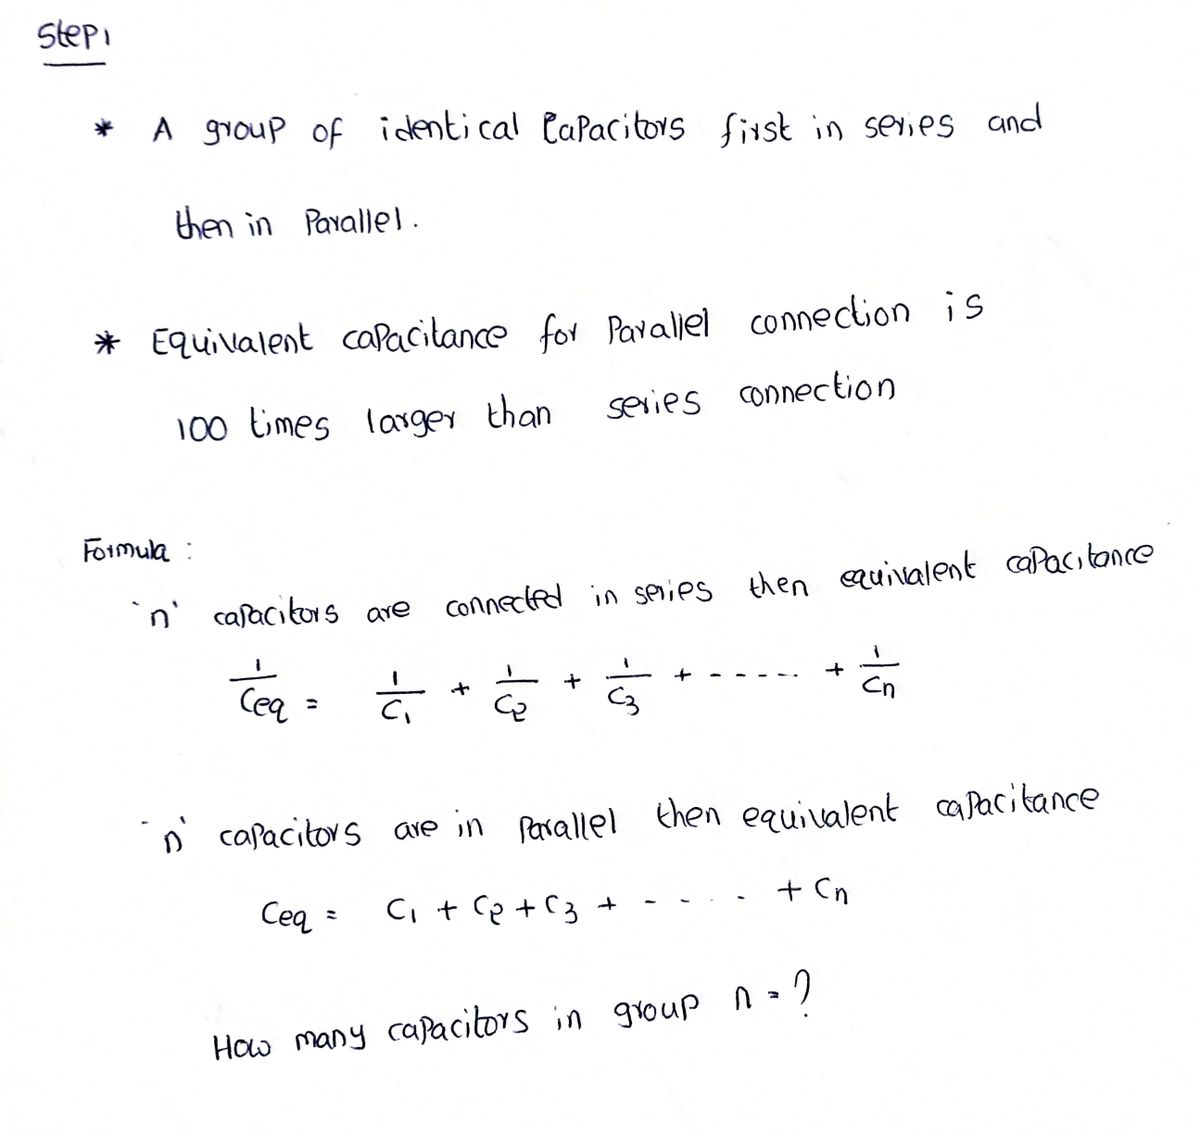 Step1
* A group of identical Capacitors first in series and
then in Parallel.
* Equivalent capacitance for Parallel connection is
100 times larger than series connection
Formula :
'n' capacitors are connected in series then equivalent capacitance
1/Ceq = 1/C1 + 1/C2 + 1/C3 + ----- + 1/Cn
'n' capacitors are in Parallel then equivalent capacitance
Ceq = C1 + C2 + C3 + - - - . . + Cn
How many capacitors in group n = ?